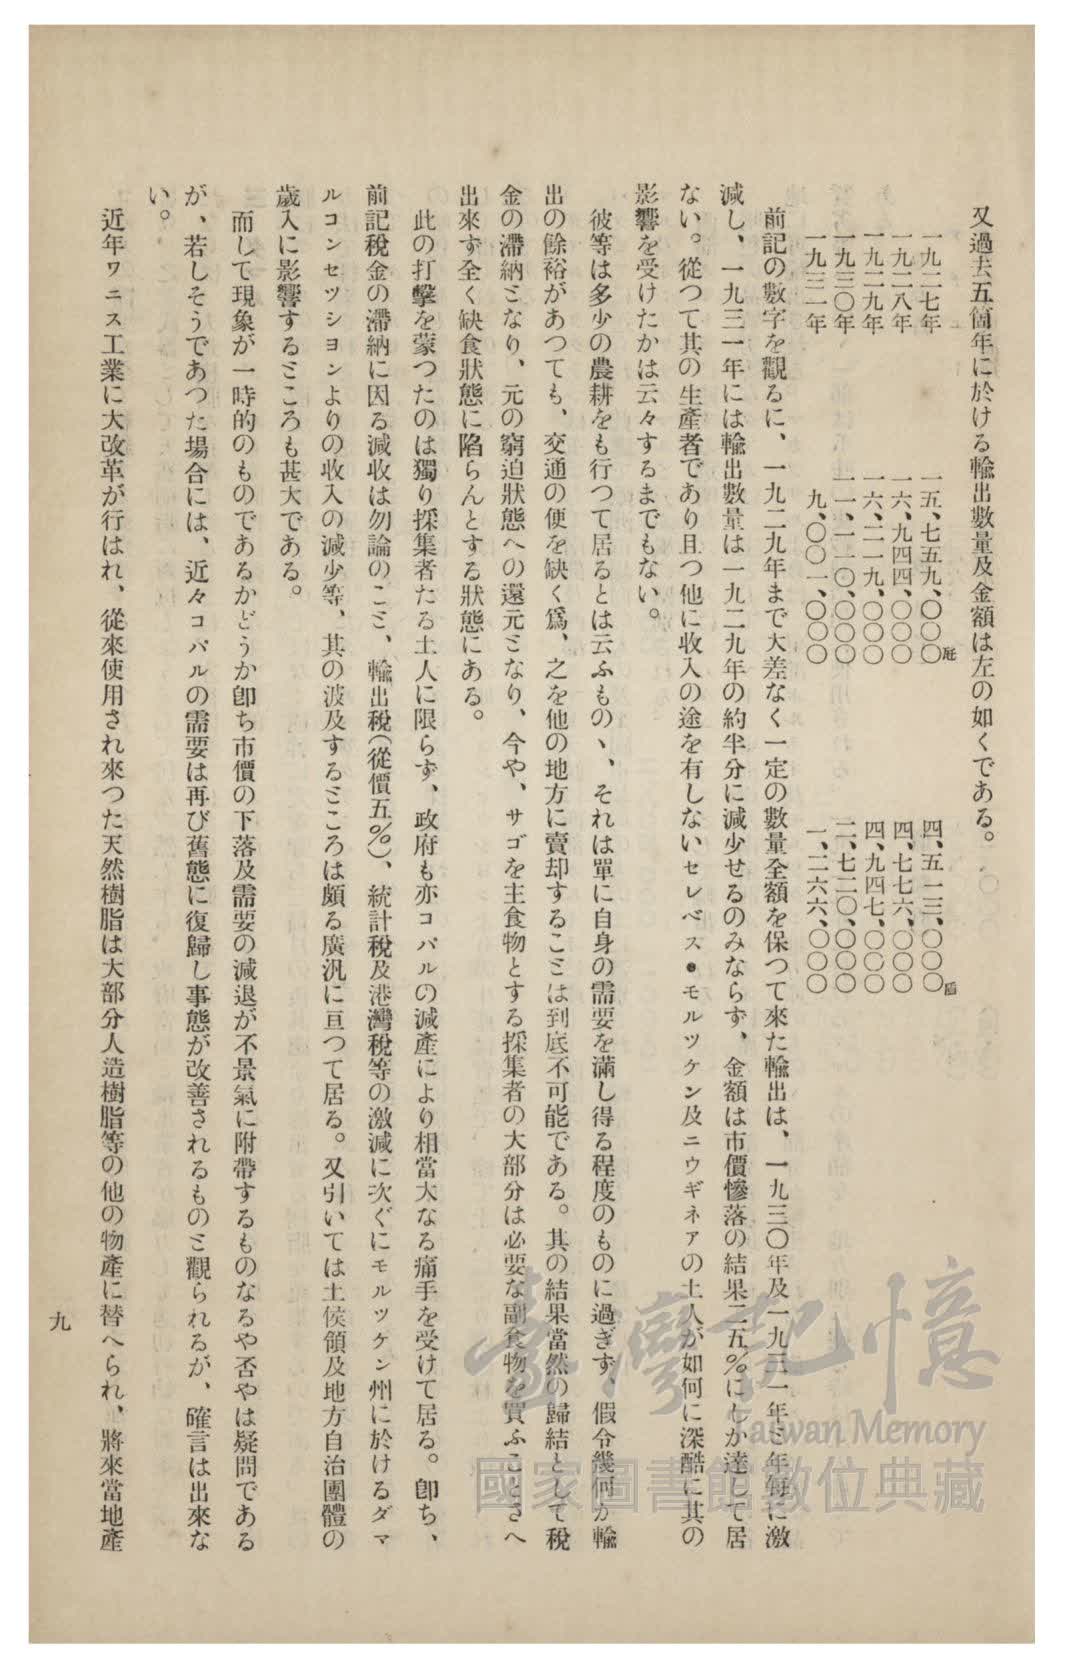 又過去五箇年に於ける輸出數量及金額は左の如くである。
一九二七年 一五、七五九、〇〇〇瓩 四、五一三、〇〇〇盾
一九二八年 一六、九四四、〇〇〇 四、七七六、〇〇〇
一九二九年 一六、二一九、〇〇〇 四、九四七、〇〇〇
一九三〇年 一一、一一〇、〇〇〇 二、七二〇、〇〇〇
一九三一年 九、〇〇一、〇〇〇 一、二六六、〇〇〇
前記の數字を觀るに、一九二九年まで大差なく一定の數量全額を保つて來た輸出は、一九三〇年及一九三一年と年每に激
減し、一九三一年には輸出數量は一九二九年の約半分に減少せるのみならず、金額は市價慘落の結果二五％にしか達して居
ない。從つて其の生產者であり且つ他に收入の途を有しないセレベス・モルツケン及ニウギネアの土人が如何に深酷に其の
影響を受けたかは云々するまでもない。
彼等は多少の農耕をも行つて居るとは云ふもの丶、それは單に自身の需要を滿し得る程度のものに過ぎず、假令幾何か輸
出の餘裕があつても、交通の便を缺く爲、之を他の地方に賣却することは到底不可能である。其の結果當然の歸結として稅
金の滯納となり、元の窮迫狀態への還元となり、今や、サゴを主食物とする採集者の大部分は必要な副食物を買ふことさへ
出來ず全く缺食狀態に陷らんとする狀態にある。
此の打擊を蒙つたのは獨り採集者たる土人に限らず、政府も亦コパルの減產により相當大なる痛手を受けて居る。卽ち、
前記稅金の滯納に因る減收は勿論のこと、輸出稅（從價五％）、統計稅及港灣稅等の激減に次ぐにモルツケン州に於けるダマ
ルコンセツシヨンよりの收入の減少等、其の波及するところは頗る廣汎に亘つて居る。又引いては土侯領及地方自治團體の
歲入に影響するところも甚大である。
而して現象が一時的のものであるかどうか卽ち市價の下落及需要の減退が不景氣に附帶するものなるや否やは疑問である
が、若しそうであつた場合には、近々コパルの需要は再び舊態に復歸し事態が改善されるものと觀られるが、確言は出來な
い。
近年ワニス工業に大改革が行はれ、從來使用され來つた天然樹脂は大部分人造樹脂等の他の物產に替へられ、將來當地產
九
臺灣記憶
Taiwan Memory
國家圖書館數位典藏